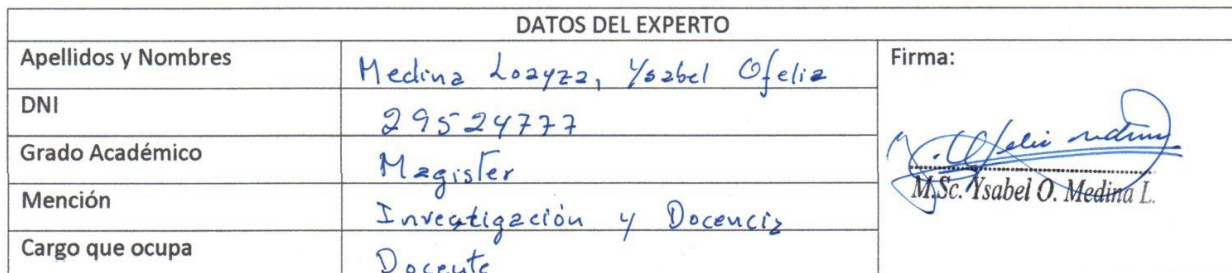 DATOS DEL EXPERTO
Apellidos y Nombres Medina Loayza, Ysabel Ofelia Firma:
DNI 29524777
Grado Académico Magister
M.Sc. Ysabel O. Medina L.
Mención Investigación y Docencia
Cargo que ocupa Docente